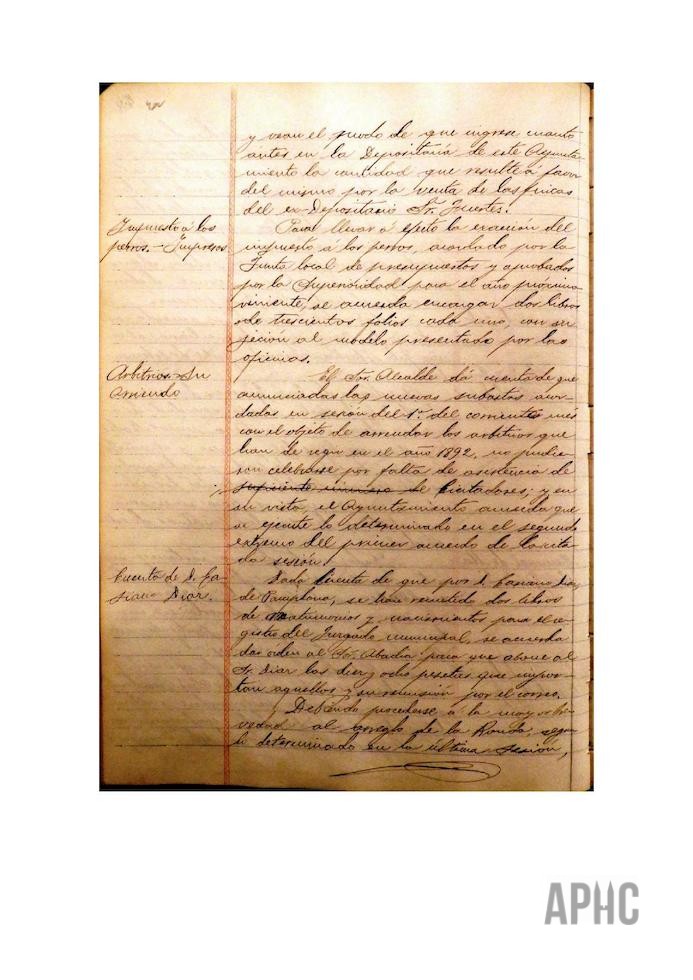 y vean el modo de que ingrese cuanto
ántes en la Depositaría de este Ayunta-
miento la cantidad que resulte á favor
del mismo por la venta de las fincas
del ex-Depositario Sr. Fuertes.
Impuesto á los
perros.- Impresos.
Para llevar á efecto la exacción del
impuesto á los perros, acordado por la
Junta local de presupuestos y aprobados
por la Superioridad para el año próximo
viniente, se acuerda encargar dos libros
de trescientos folios cada uno, con su
jeción al modelo presentado por las
oficinas.
Arbitrios. Su
arriendo
El Sor. Alcalde dá cuenta de que
anunciadas las nuevas subastas acor-
dadas en sesión del 1º. del corriente mes
con el objeto de arrendar los arbitrios que
han de regir en el año 1892, no pudie-
ron celebrarse por falta de asistencia de
suficiente número de licitadores; y en
su vista, el Ayuntamiento acuerda que
se ejecute lo determinado en el segundo
extremo del primer acuerdo de la cita-
da sesión.
Cuenta de D. Ca-
siano Diaz.
Dada cuenta de que por D. Casiano Diaz,
de Pamplona, se han remitido dos libros
de matrimonios y nacimientos para el re-
gistro del Juzgado municipal, se acuerda
dar orden al Sr. Abadía para que abone al
Sr. Diaz las diez y ocho pesetas que impor-
tan aquellos y su remisión por el correo.
Debiendo procederse á la mayor bre-
vedad al arreglo de la Ronda, según
lo determinado en la última sesión,
APHC